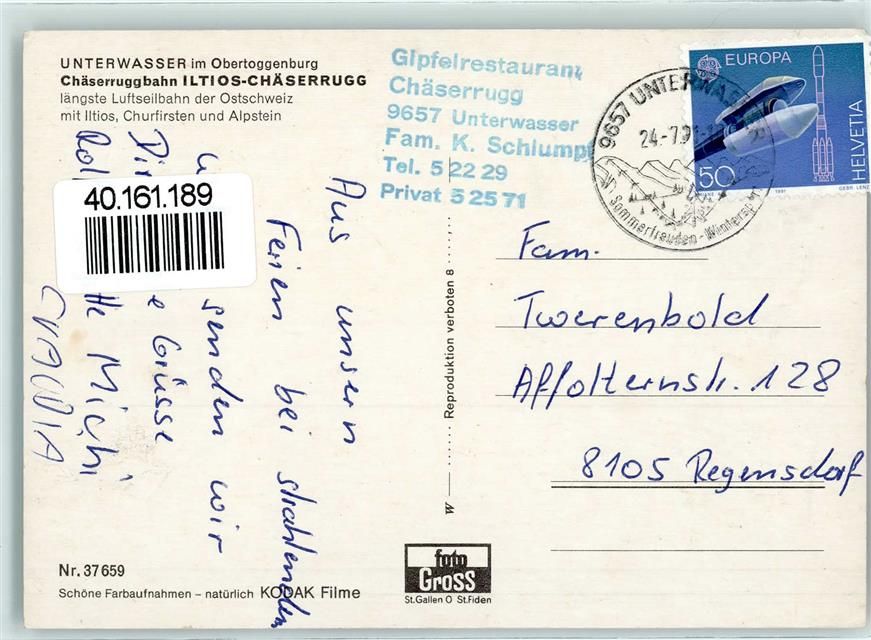 UNTERWASSER im Obertoggenburg
Chäserruggbahn ILTIOS-CHÄSERRUGG
längste Luftseilbahn der Ostschweiz
mit Iltios, Churfirsten und Alpstein
Gipfelrestaurant
Chäserrugg
9657 Unterwasser
Fam. K. Schlumpf
Tel. 5 22 29
Privat 5 25 71
9657 UNTERWASSER
24.-7.91
Sommerfreuden - Wintersport
EUROPA
HELVETIA
50
1991
40.161.189
Aus unsern
Ferien bei strahlendem
senden wir
Dir Grüsse
Michi
CLAUDIA
W
Reproduktion verboten 8
Fam.
Twerenbold
Affolternstr. 128
8105 Regensdorf
Nr. 37659
Schöne Farbaufnahmen – natürlich KODAK Filme
foto
Gross
St.Gallen O St.Fiden